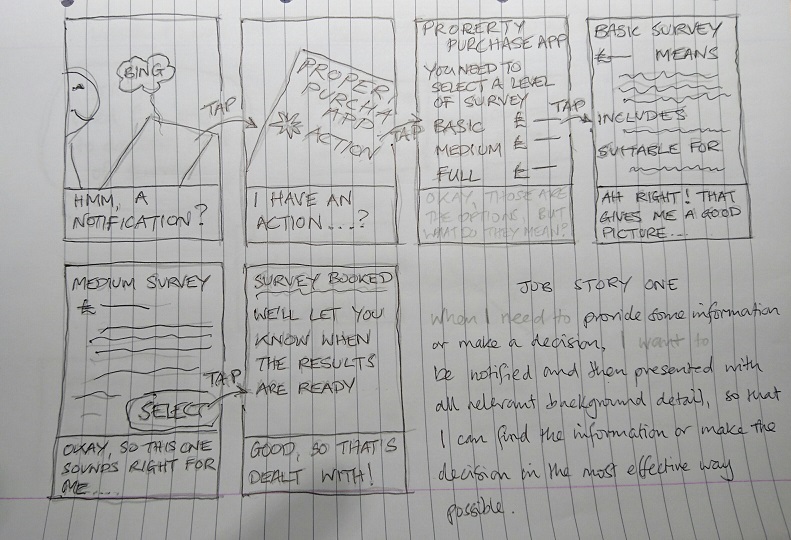 BING
HMM, A
NOTIFICATION?
TAP
PROPER
PURCHA
APP
ACTION
I HAVE AN
ACTION....?
TAP
PROPERTY
PURCHASE APP
YOU NEED TO
SELECT A LEVEL
OF SURVEY
BASIC £
MEDIUM £
FULL £
OKAY, THOSE ARE
THE OPTIONS, BUT
WHAT DO THEY MEAN?
TAP
BASIC SURVEY
£ MEANS
INCLUDES
SUITABLE FOR
AH RIGHT! THAT
GIVES ME A GOOD
PICTURE...
MEDIUM SURVEY
£
SELECT
OKAY, SO THIS ONE
SOUNDS RIGHT FOR
ME.....
TAP
SURVEY BOOKED
WE'LL LET YOU
KNOW WHEN
THE RESULTS
ARE READY
GOOD, SO THAT'S
DEALT WITH!
JOB STORY ONE
When I need to provide some information
or make a decision, I want to
be notified and then presented with
all relevant background detail, so that
I can find the information or make the
decision in the most effective way
possible.